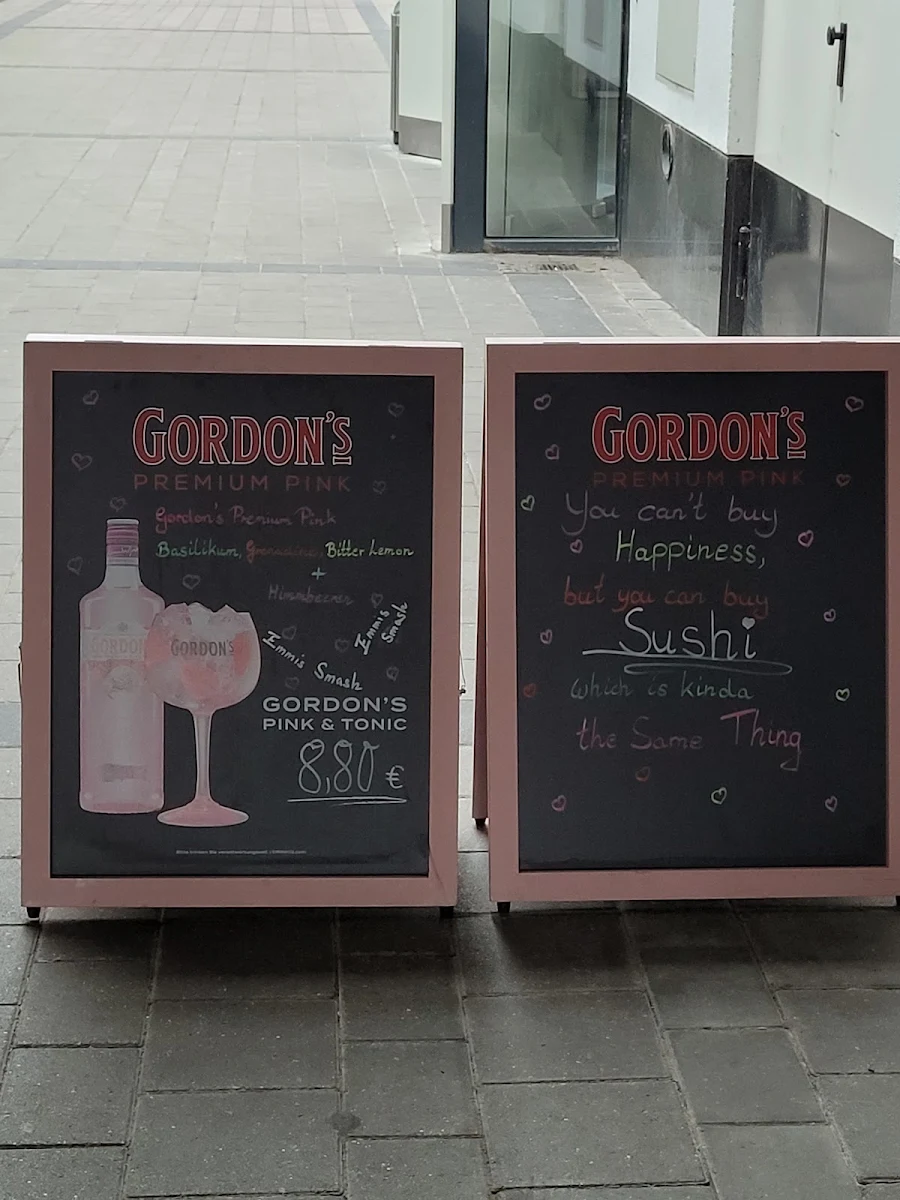 GORDON'S
PREMIUM PINK
Gordon's Premium Pink
Basilikum, Grenadine, Bitter Lemon
+
Himmbeeren
Immis
Smash
Immis Smash
GORDON'S
GORDON'S
GORDON'S
PINK & TONIC
8,80 €
GORDON'S
PREMIUM PINK
You can't buy
Happiness,
but you can buy
Sushi
which is kinda
the Same Thing